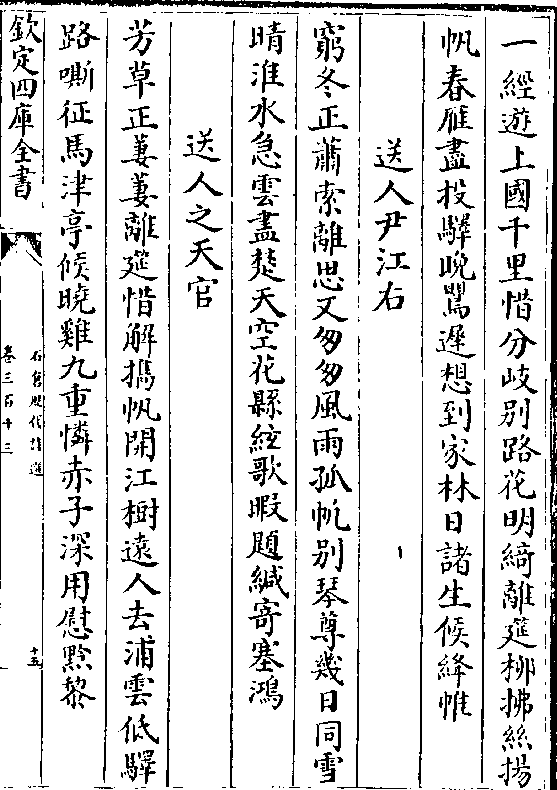 一經遊上國千里惜分岐別路花明綺離筵柳拂絲揚
帆春雁盡投驛晚鶯遲想到家林日諸生候絳帷
送人尹江右
窮冬正蕭索離思又匆匆風雨孤帆別琴尊幾日同雪
晴淮水急雲盡楚天空花縣絃歌暇題緘寄塞鴻
送人之天官
芳草正萋萋離筵惜解攜帆開江樹遠人去浦雲低驛
路嘶征馬津亭候曉雞九重憐赤子深用慰黔黎
欽定四庫全書
石倉歷代詩選
卷三百十三
十五